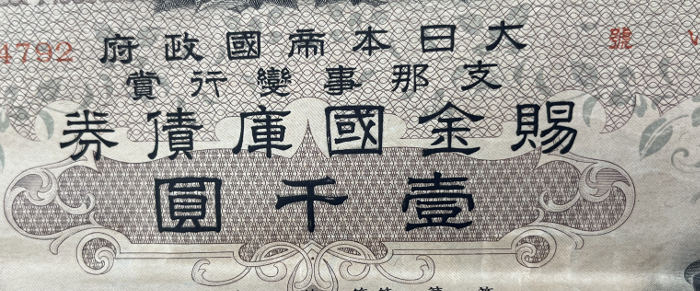 大日本帝國政府
支那事變行賞
賜金國庫債券
壹千圓
號
4792